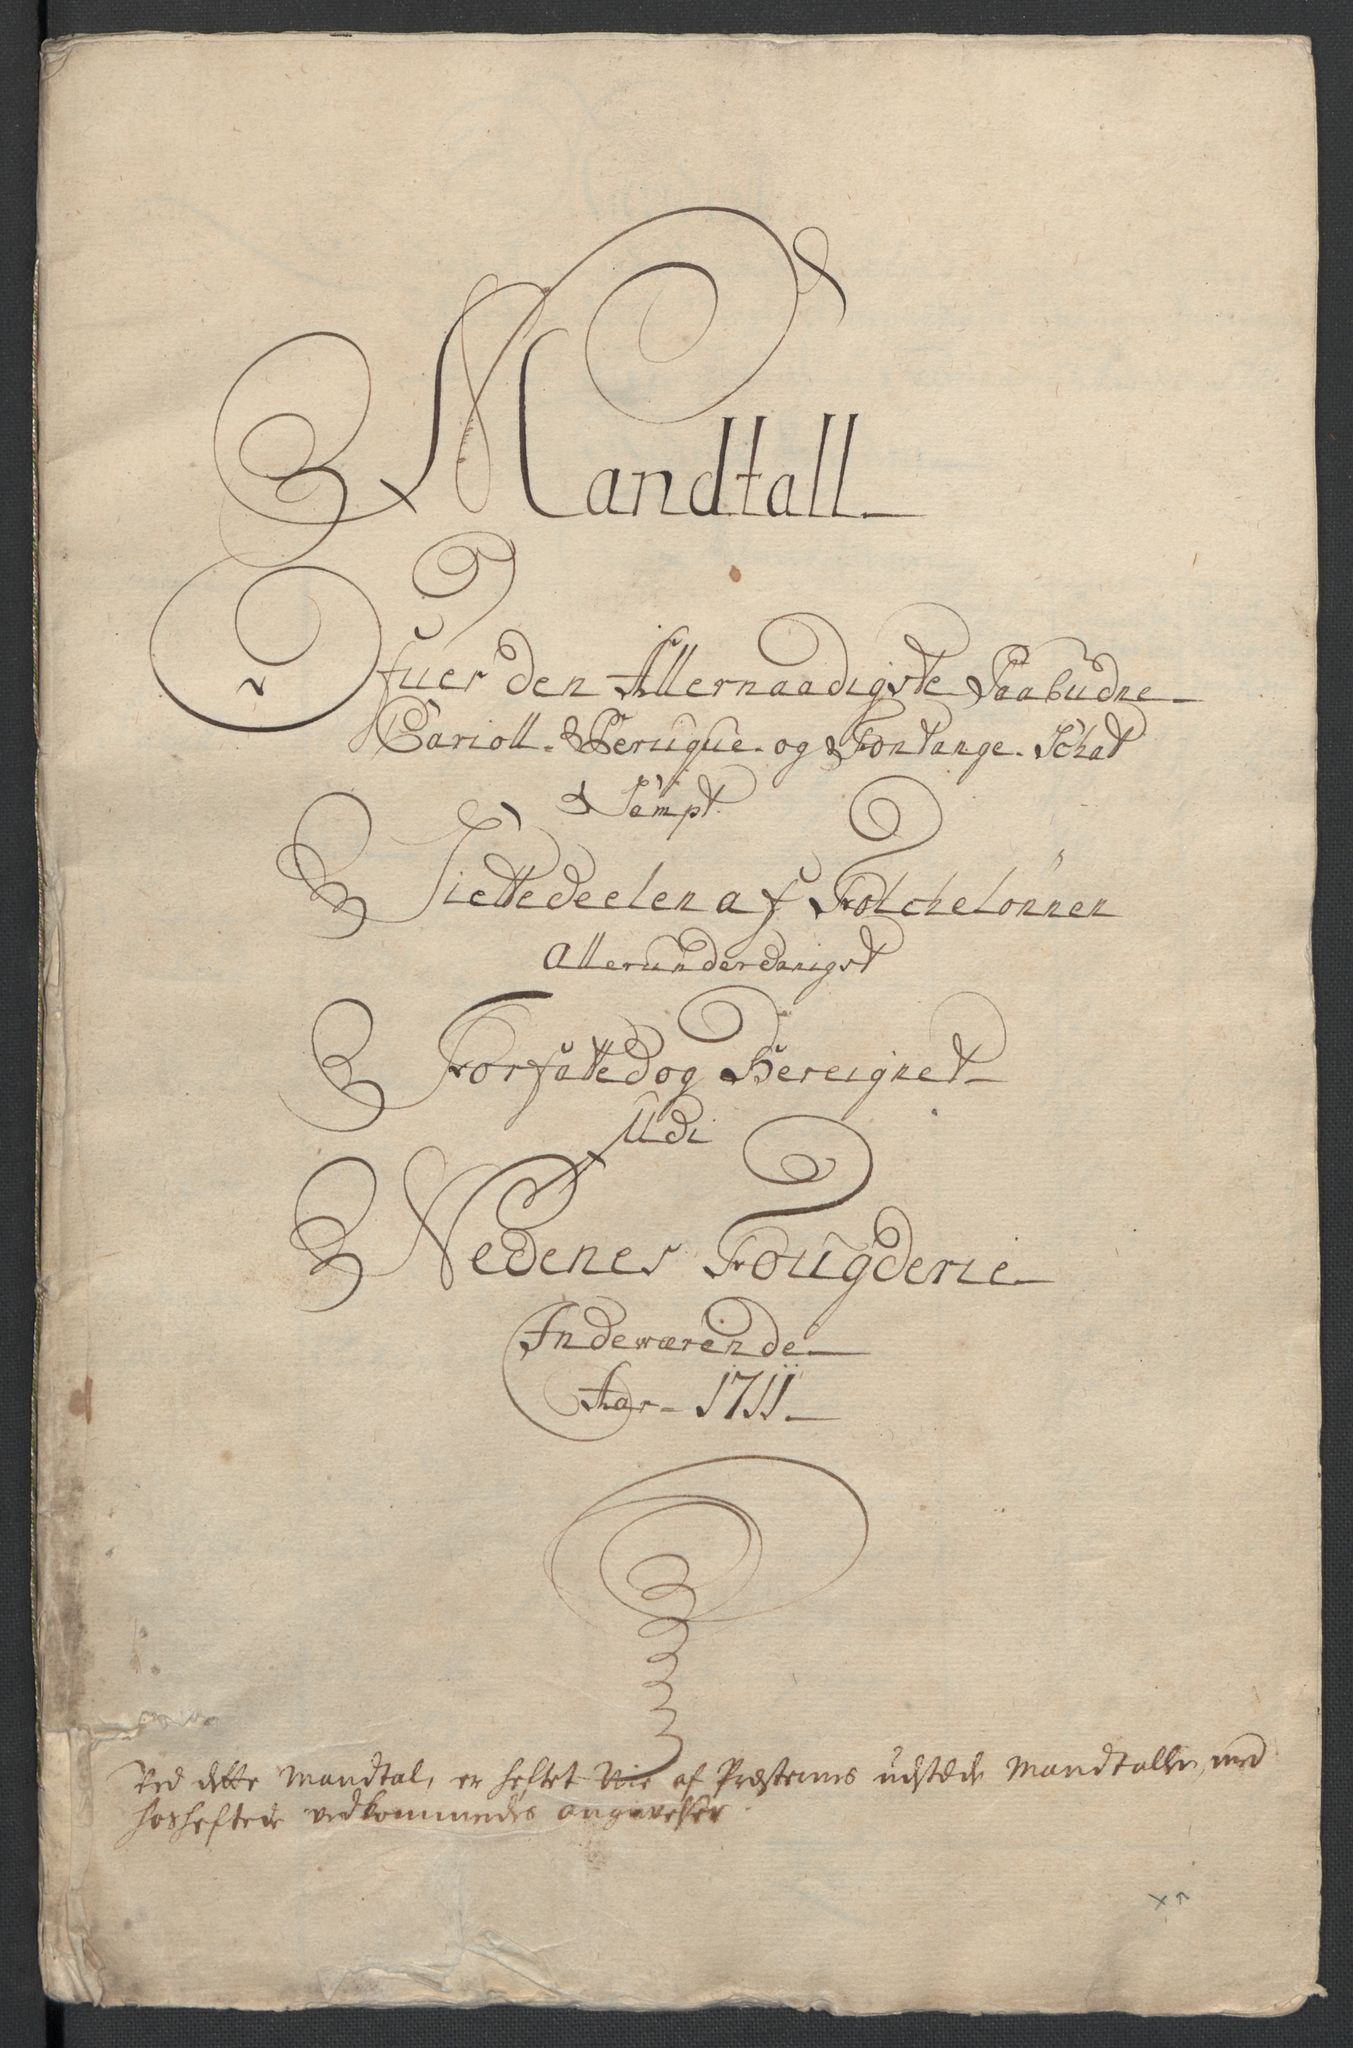 Mandtall
Ofuer den Allernaadigste Paabudne
Carioll. Perüqüe. og Fontange. Schat
Sempt
Siettedeelen af Folchelönnen
Alleründerdanigst
Forfatted og Bereignet
Udi
Nedenes Foügderie
Indeværende
Aar - 1711
Ved dette Mandtal, er heftet Nie af Præsternis udstæde Mandtaller, med
hosheftede vedkommendes angivelser.